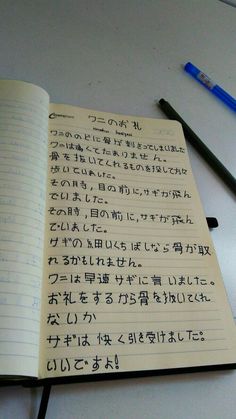 ワニのお礼
ワニののどに骨が刺さってしまいました
ワニは痛くてたまりません。
骨を抜いてくれるものを探して方々
歩いていました。
その時、目の前に、サギが飛ん
でいました。
その時、目の前に、サギが飛ん
でいました。
サギの細いくちばしなら骨が取
れるかもしれません。
ワニは早速サギに言いました。
お礼をするから骨を抜いてくれ
ないか
サギは快く引き受けました。
いいですよ!